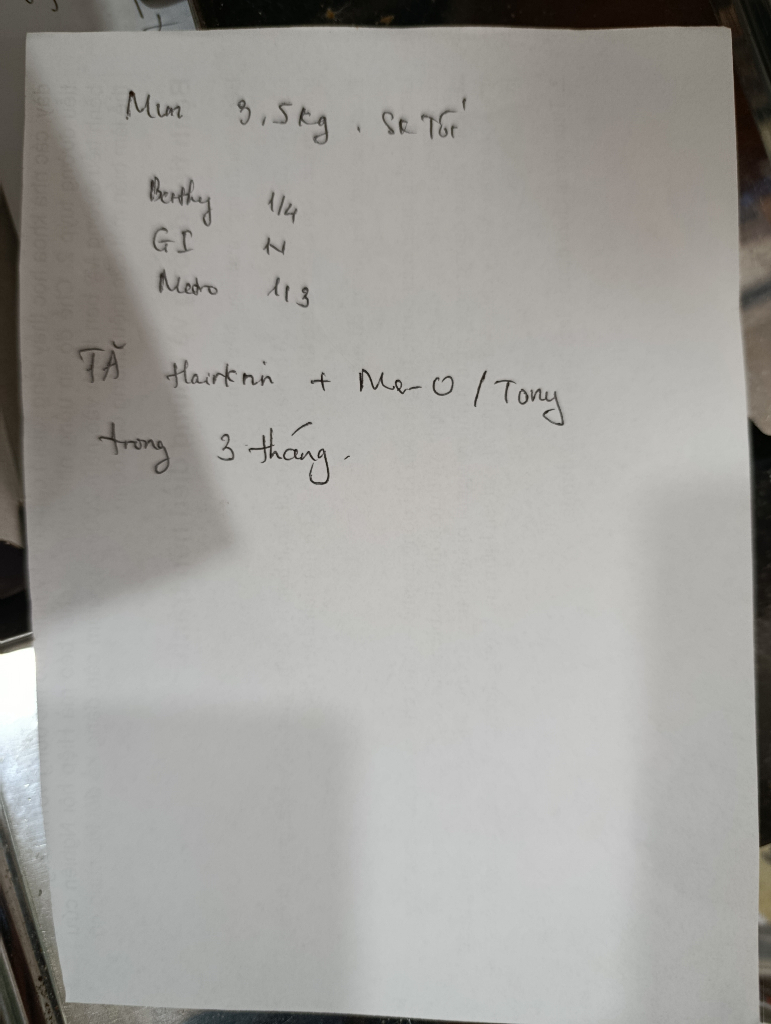 Mun 3,5kg. SK Tốt
Berthy 1/4
GI N
Metro 1/3
TĂ Hairknin + Me-O / Tony
trong 3 tháng.